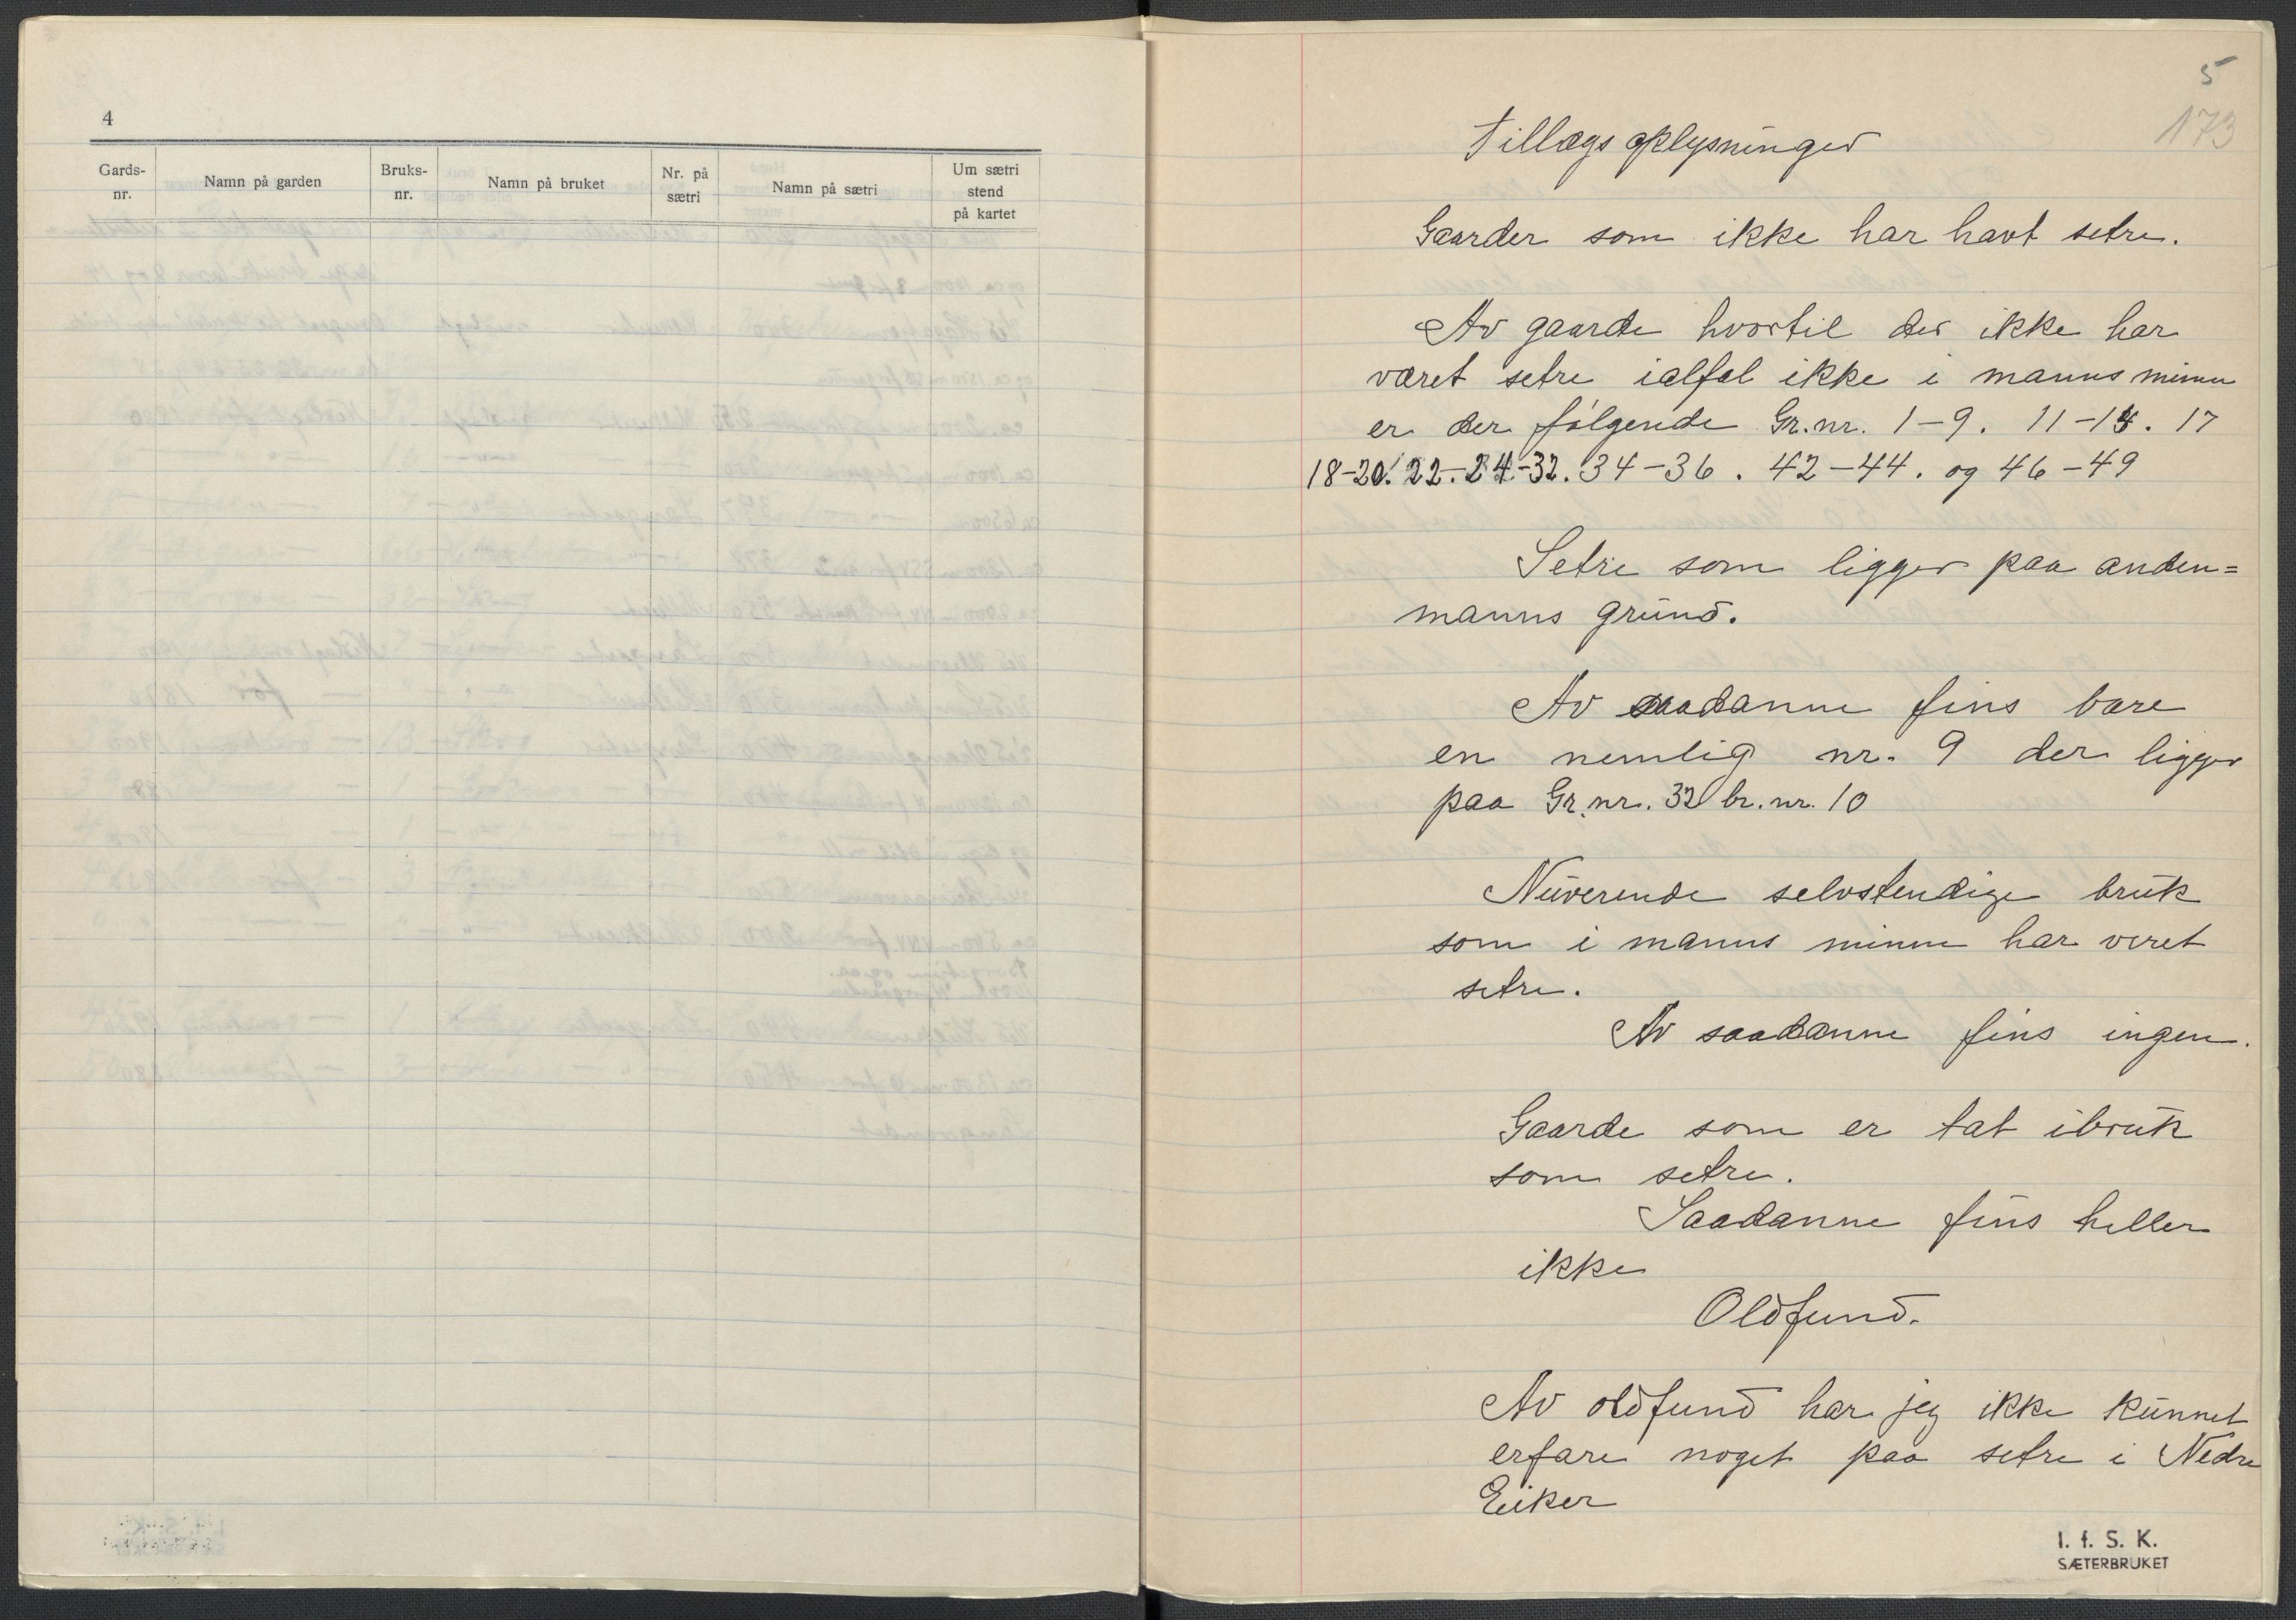 4
Gards-
nr.
Namn på garden
Bruks-
nr.
Namn på bruket
Nr. på
sætri
Namn på sætri
Um sætri
stend
på kartet
5
173
Tillægsoplysninger
Gaarder som ikke har havt setre.
Av gaarde hvortil der ikke har
været setre ialfal ikke i manns minne
er der følgende Gr.nr. 1-9. 11-14. 17
18-20. 22-24-32. 34-36. 42-44. og 46-49
Setre som ligger paa anden=
manns grund.
Av saadanne fins bare
en nemlig nr. 9 der ligger
paa Gr.nr. 32 br.nr. 10
Nuverende selvstendige bruk
som i manns minne har veret
setre.
Av saadanne fins ingen.
Gaarde som er tat ibruk
som setre.
Saadanne fins heller
ikke
Oldfund.
Av oldfund har jeg ikke kunnet
erfare noget paa setre i Nedre
Eiker
I. f. S. K.
SÆTERBRUKET